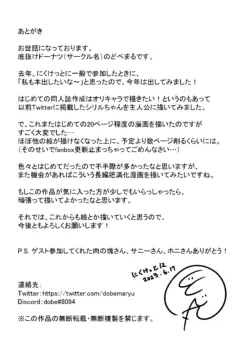 あとがき
お世話になっております。
底抜けドーナツ（サークル名）のどべまるです。
去年、にくけっとに一般で参加したときに、
「私も本出したいな～」と思ったので、今年は出してみました！
はじめての同人誌作成はオリキャラで描きたい！というのもあって
以前Twitterに掲載したシリルちゃんを主人公に描いてみました。
で、これまたはじめての20ページ程度の漫画を描いたのですが
すごく大変でした…
ほぼ他の絵が描けなくなった上に、予定より数ページ削るくらいには。
（そのせいでfanbox更新止まっちゃってごめんなさい…）
色々とはじめてだったので不手際が多かったなと思いますが、
また機会があればこういう長編肥満化漫画を描いてみたいですね。
もしこの作品が気に入った方が少しでもいらっしゃったら、
頑張って描いてよかったなと思います。
それでは、これからも絵とか描いていくと思うので、
今後ともよろしくお願いします！
P.S. ゲスト参加してくれた肉の塊さん、サニーさん、ホニさんありがとう！
にくけっと12
2023.6.17
連絡先：
Twitter：https://twitter.com/dobemaryu
Discord: dobe#8094
※この作品の無断転載・無断複製を禁じます。